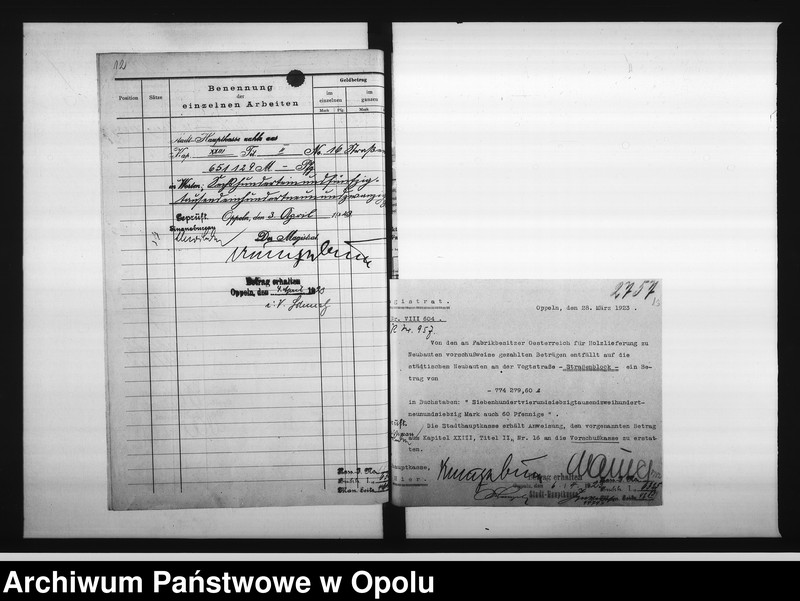 12
Position
Sätze
Benennung
der
einzelnen Arbeiten
Geldbetrag
im
einzelnen
im
ganzen
Mark Pfg.
Mark
Stadt-Hauptkasse zahle aus
Kap. XXIII Tit. II No. 16 Straßen
651129 M – Pfg
in Worten: Sechshunderteinundfünfzig-
tausendeinhundertneunundzwanzig
Geprüft. Oppeln, den 3. April 1923
Der Magistrat
Betrag erhalten
Oppeln, den 4. April 1923
2757
13
gistrat.
Oppeln, den 28. März 1923.
Nr. VIII 604.
Von den an Fabrikbesitzer Oesterreich für Holzlieferung zu
Neubauten vorschußweise gezahlten Beträgen entfällt auf die
städtischen Neubauten an der Vogtstraße - Straßenblock - ein Be-
trag von
- 774 279,60 M
in Buchstaben: " Siebenhundertvierundsiebzigtausendzweihundert-
neunundsiebzig Mark auch 60 Pfennige ".
Die Stadthauptkasse erhält Anweisung, den vorgenannten Betrag
aus Kapitel XXIII, Titel II, Nr. 16 an die Vorschußkasse zu erstat
ten.
hauptkasse,
Hier.
Betrag erhalten
Stadt-Hauptkasse
Archiwum Państwowe w Opolu